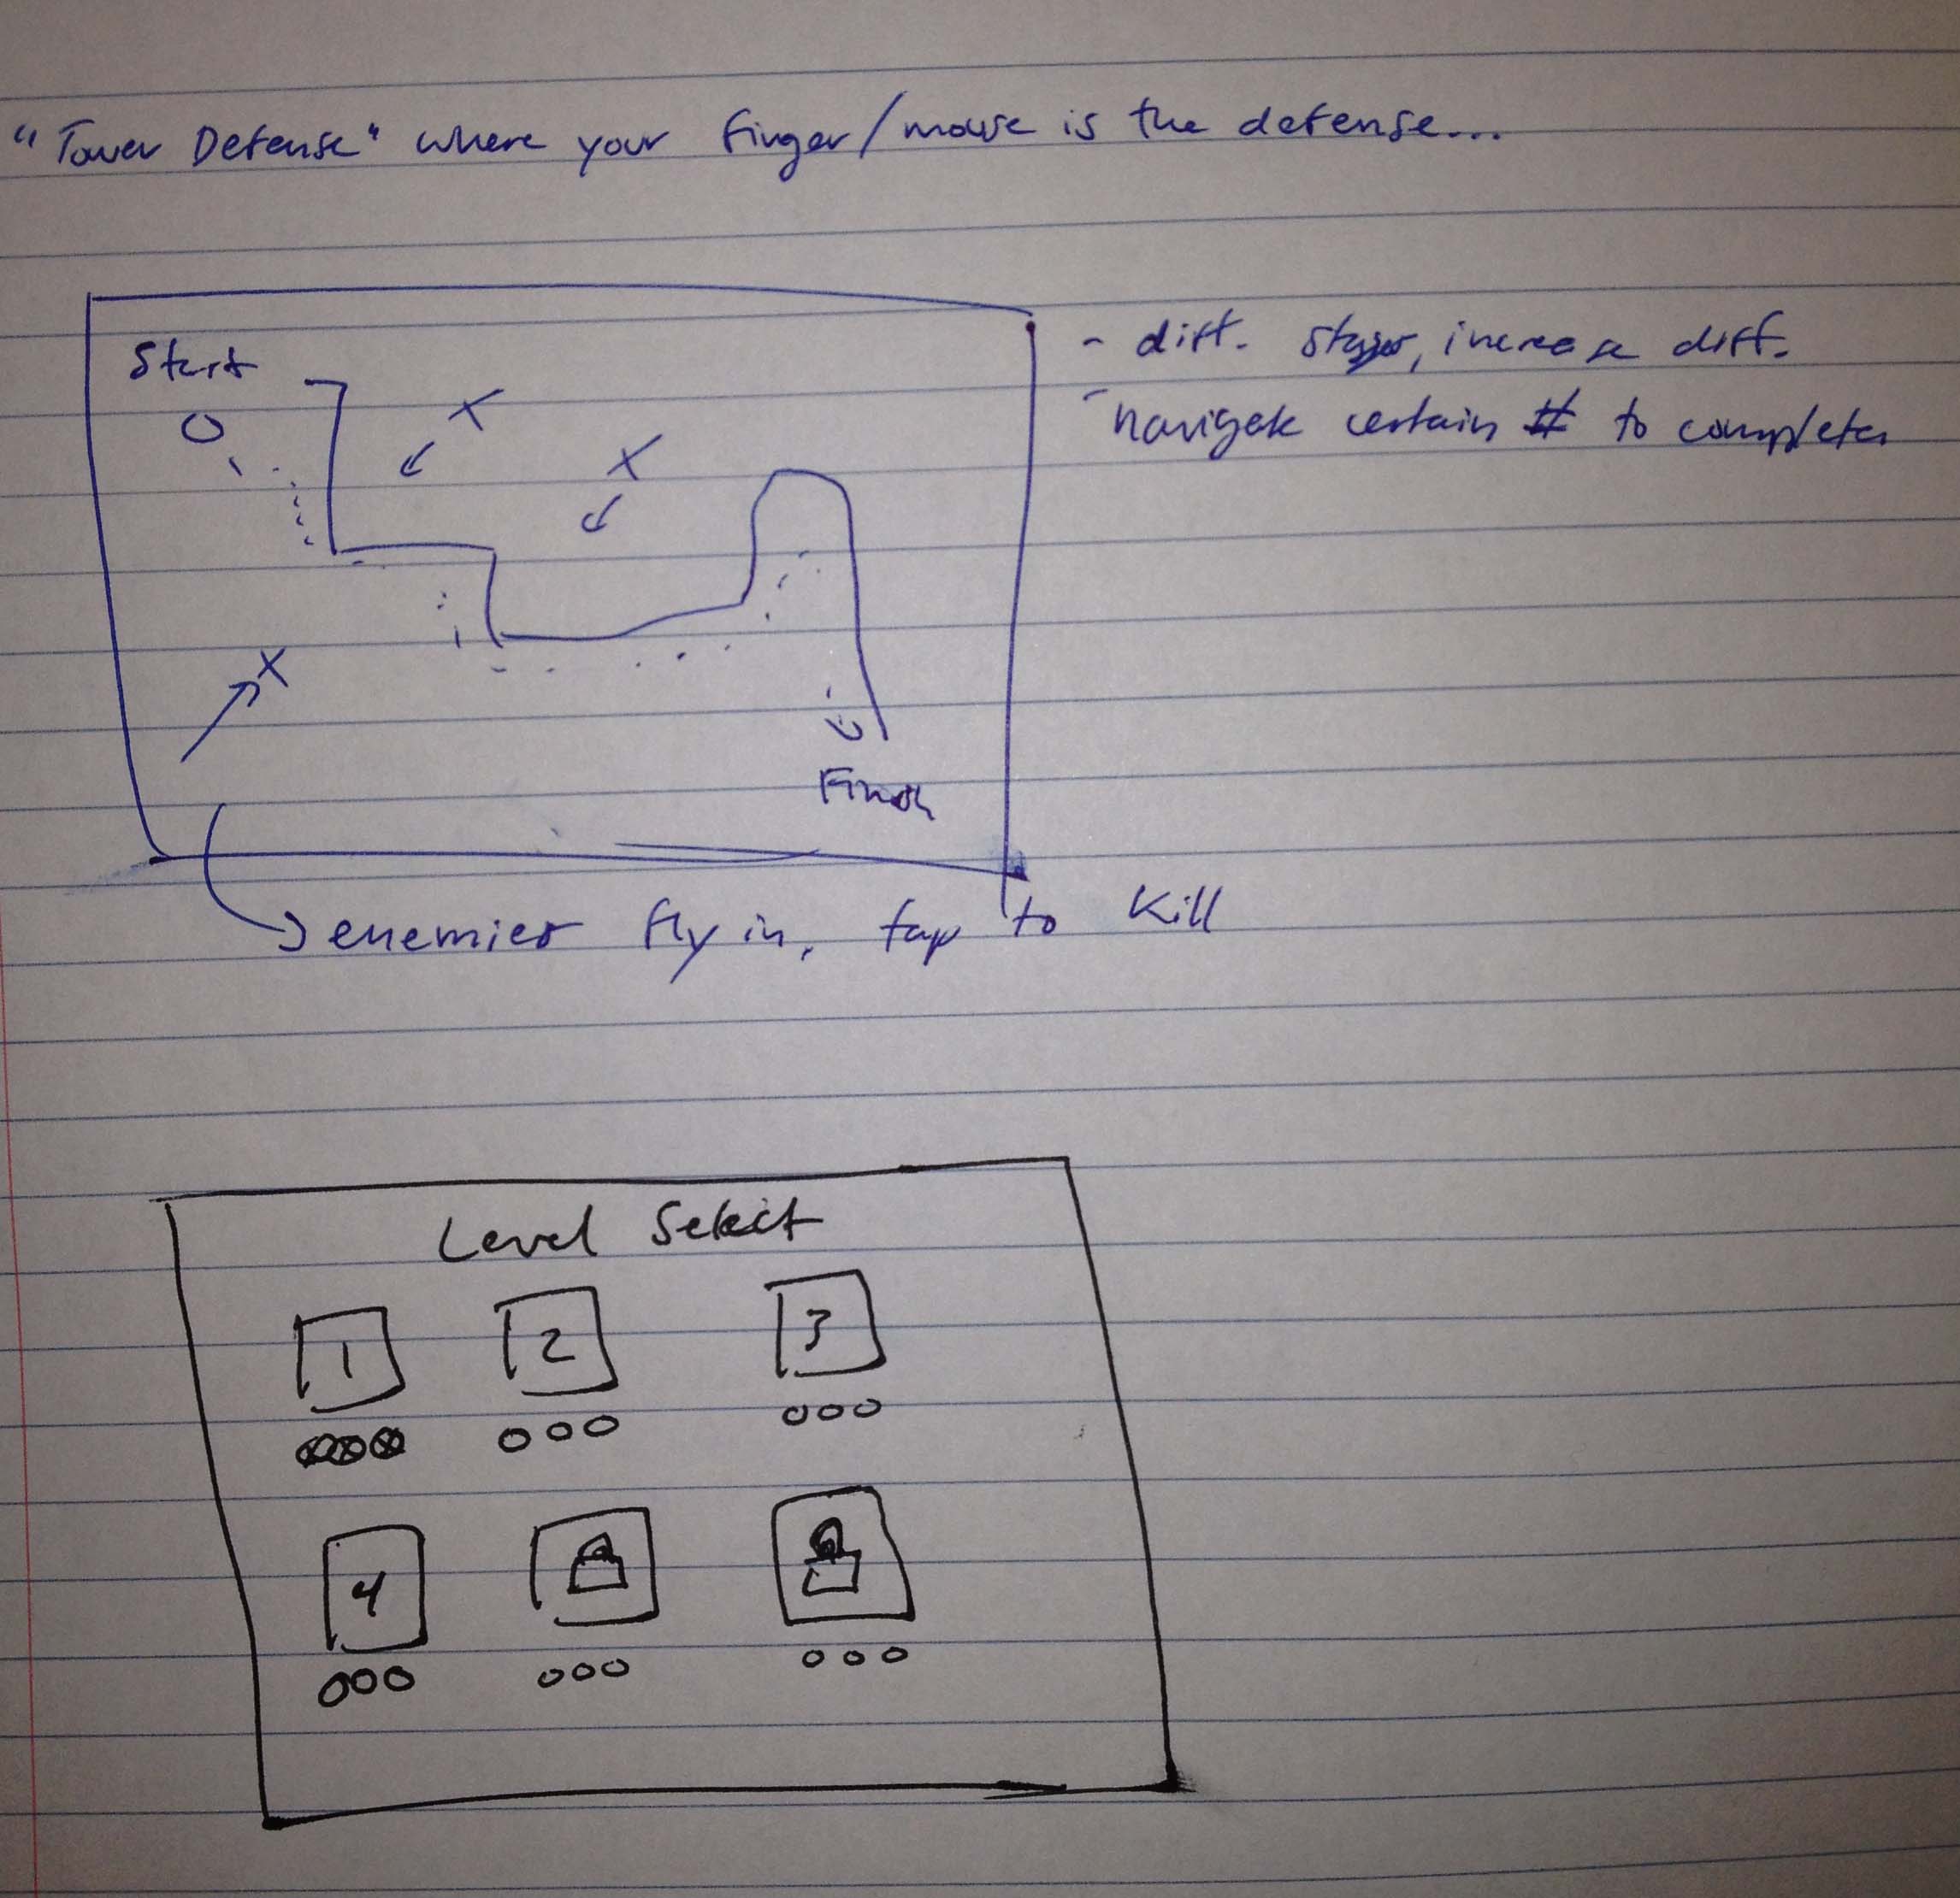 "Tower Defense" where your finger/mouse is the defense...
Start
- diff. stages, increase diff.
- navigate certain # to complete
X
X
X
Finish
enemies fly in, tap to kill
Level Select
1 2 3
4